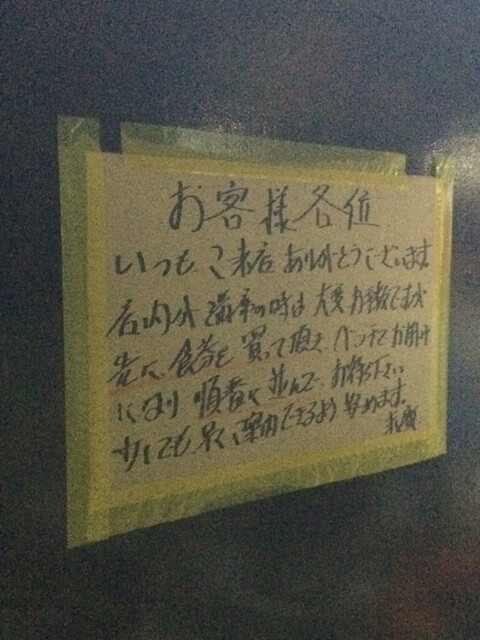 お客様各位
いつもご来店ありがとうございます。
店内が満席の時は大変お手数ですが
先に、食券を買って頂き、ベンチでお掛け
になり順番に並んで、お待ち下さい
少しでも早くご案内できるよう努めます。